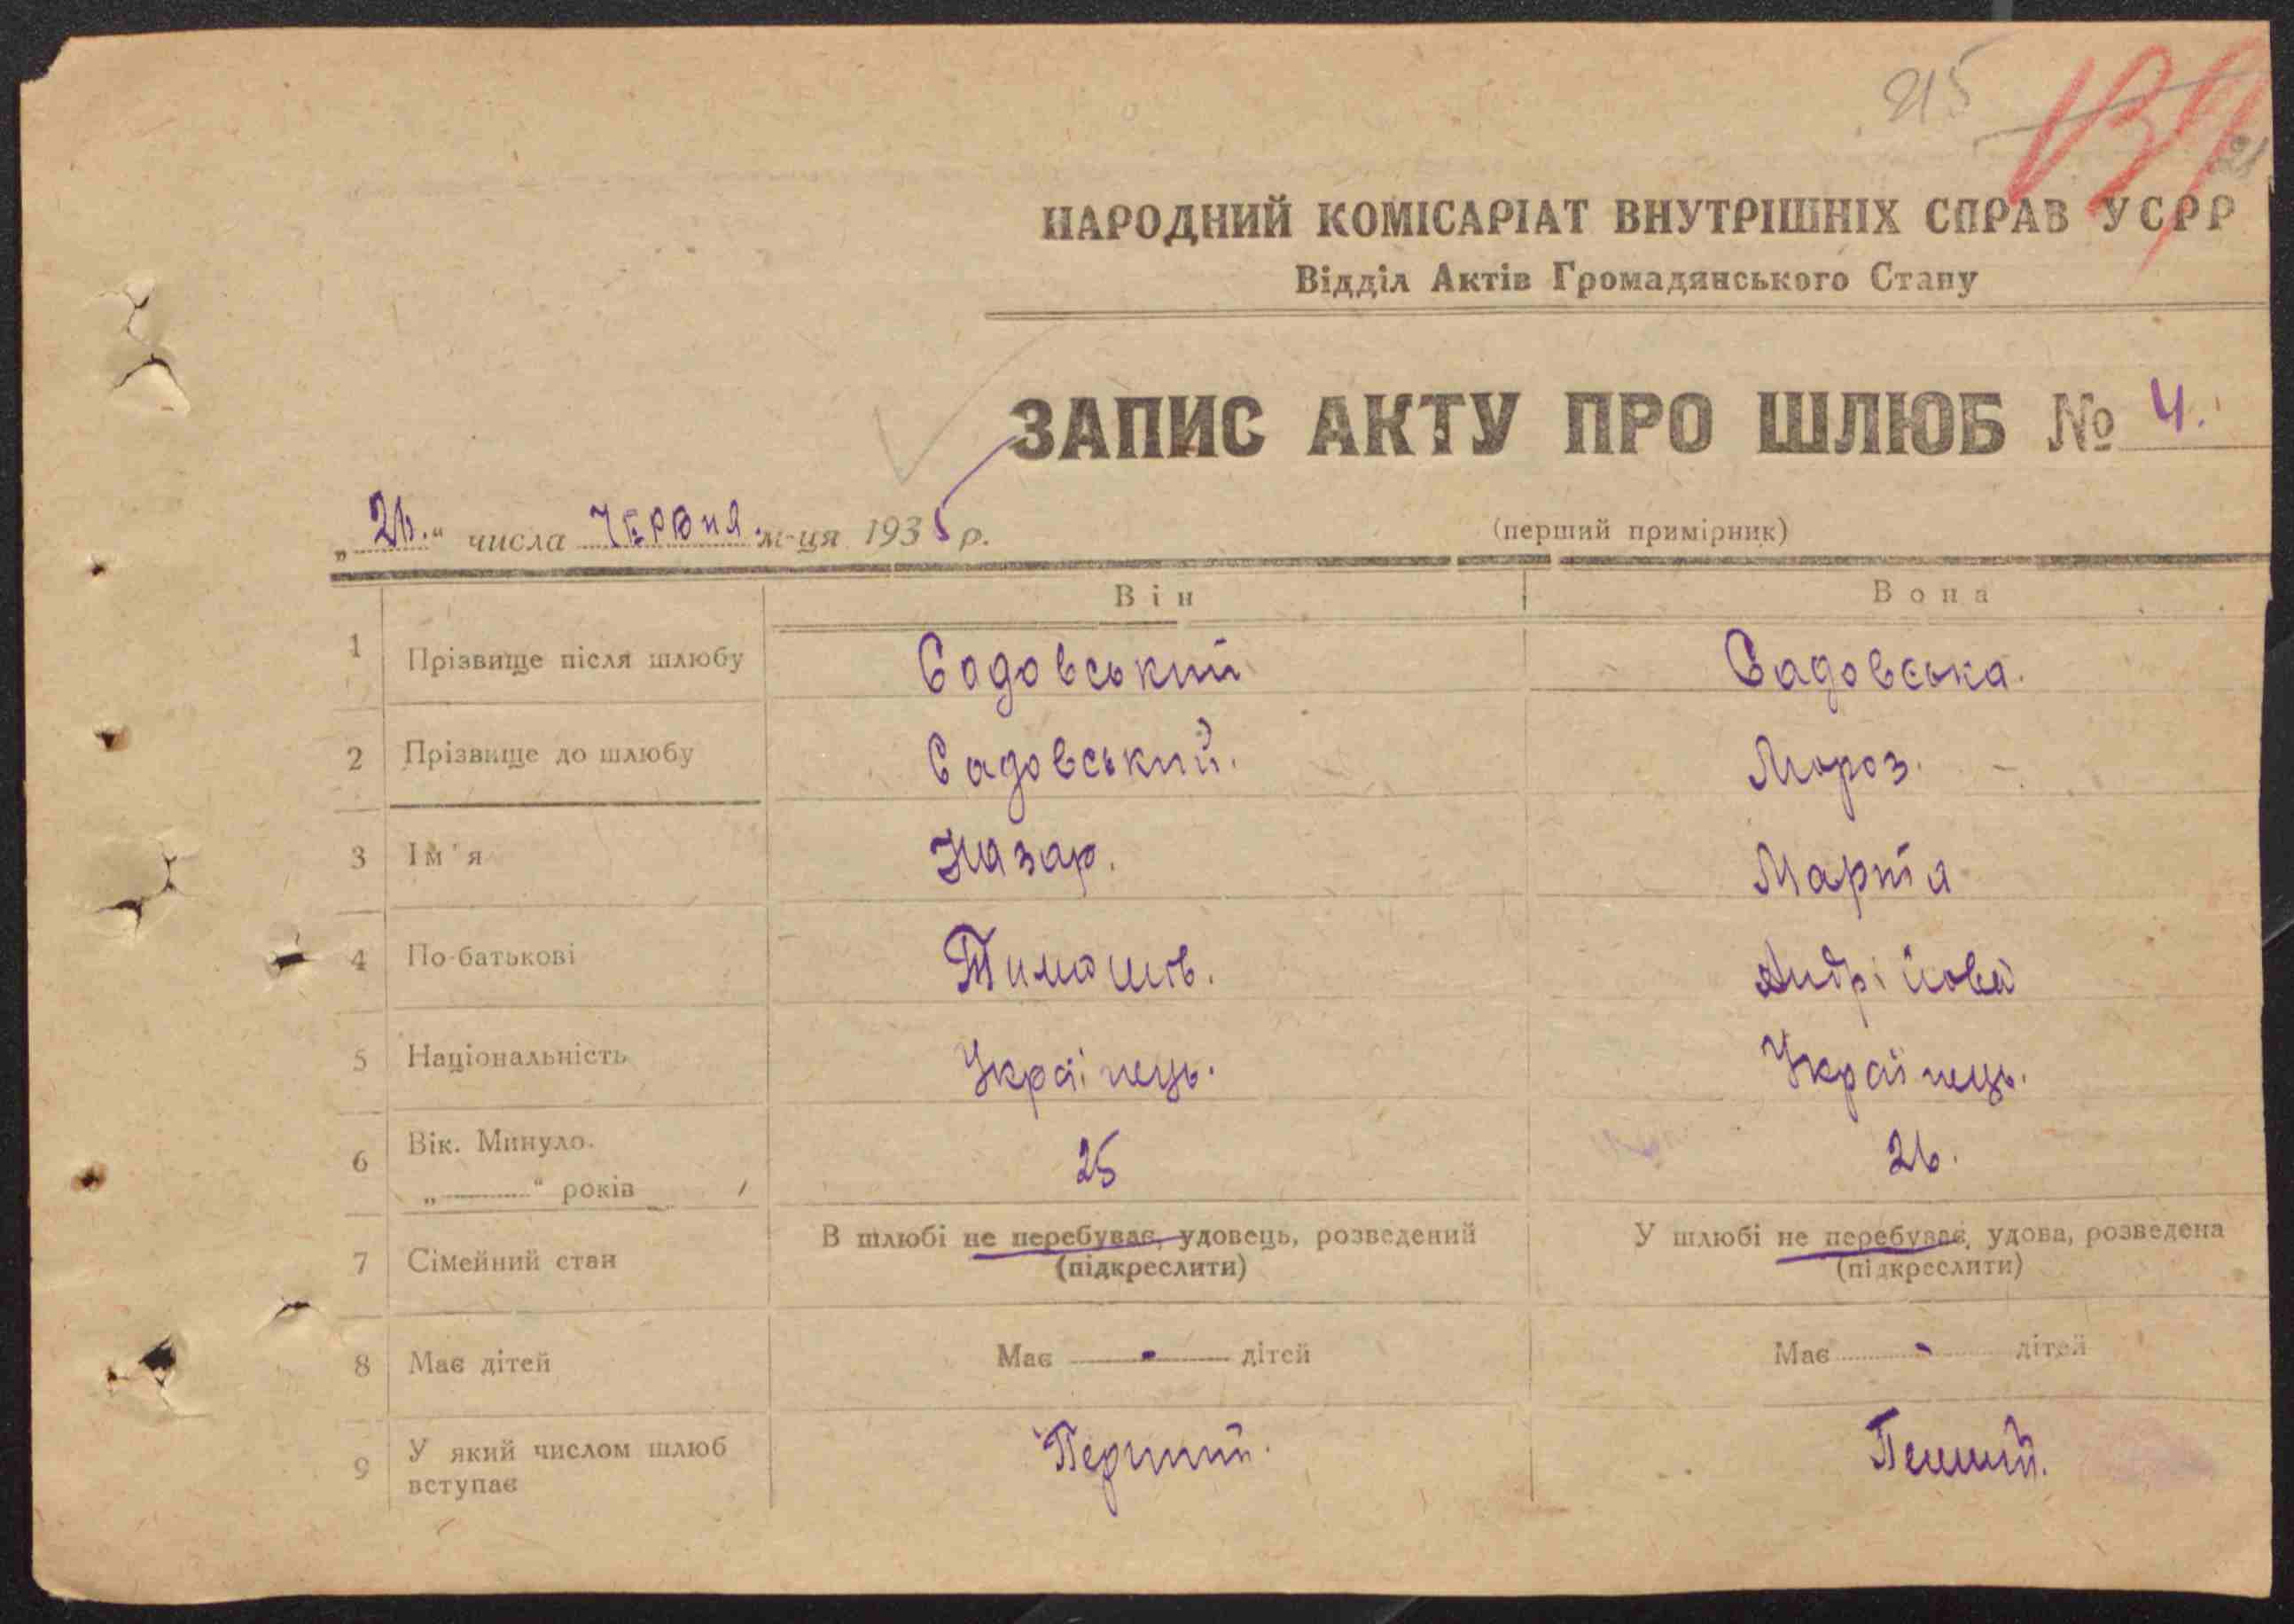 215
139
НАРОДНИЙ КОМІСАРІАТ ВНУТРІШНІХ СПРАВ УСРР
Відділ Актів Громадянського Стану
ЗАПИС АКТУ ПРО ШЛЮБ № 4.
„26.“ числа ЧЕРВНЯ м-ця 1935 р.
(перший примірник)
Він Вона
1 Прізвище після шлюбу Садовський Садовська.
2 Прізвище до шлюбу Садовський. Мороз.
3 Ім'я Назар. Марта
4 По-батькові Тимошів. Андрійова
5 Національність Українець. Українець.
6 Вік. Минуло. 25 26.
„ “ років
7 Сімейний стан В шлюбі не перебуває, удовець, розведений У шлюбі не перебуває, удова, розведена
(підкреслити) (підкреслити)
8 Має дітей Має - дітей Має - дітей
9 У який числом шлюб Перший. Пеший.
вступає